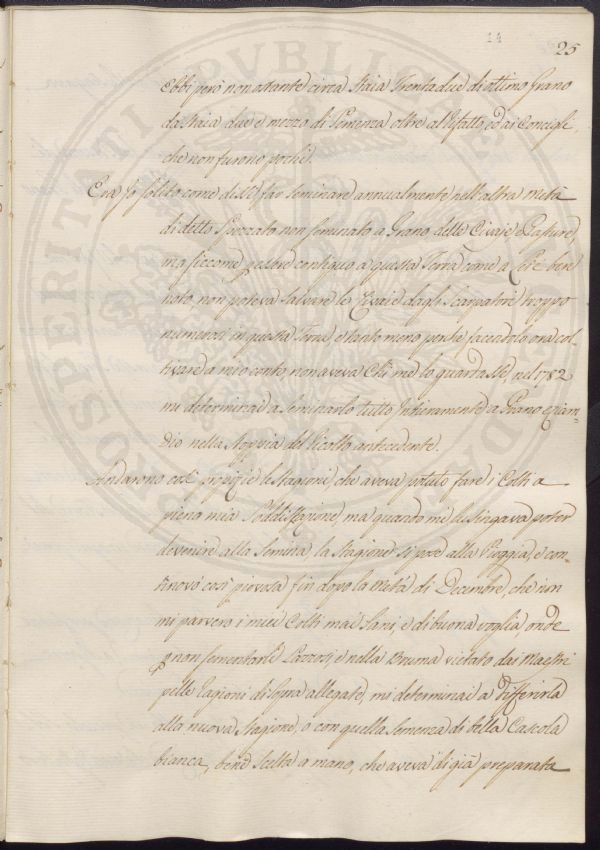 14
25
Ebbi però non ostante circa Staia Trentadue di ottimo Grano
da Staia due e mezzo di Semenza oltre al Vefatto, ed ai Concigli,
che non furono pochi.
Era Io solito come dissi far seminare annualmente nell'altra metà
di detto Spezzato non seminato a Grano delle Civaje e Pasture,
ma siccome p essere contiguo a questa Terra, come a Lei è ben
noto, non poteva salvare le Civaie dagli Scarpatori troppo
numerosi in questa Terra, e tanto meno perchè facendolo ora col-
tivare a mio conto non aveva Chi me lo guardasse, nel 1782
mi determinai a seminarlo tutto Intieramente a Grano eziam-
Dio nella Stoppia del Ricolto antecedente.
Andarono così propizie le Stagioni, che aveva potuto fare i Colti a
piena mia Soddisfazione, ma quando mi lusingava poter
devenire alla Semina, la Stagione si pose alla Pioggia, e con-
tinovò così piovosa fin dopo la metà di Decembre, che non
mi parvero i miei Colti mai Sani, e di buona voglia onde
p non sementarli Lazzosi, e nella Bruma vietato dai Maestri
pelle Ragioni di Sopra allegate, mi determinai a Differirla
alla nuova Stagione, o con quella Semenza di bella Cascola
bianca, bene Scelta a mano, che aveva di già preparata